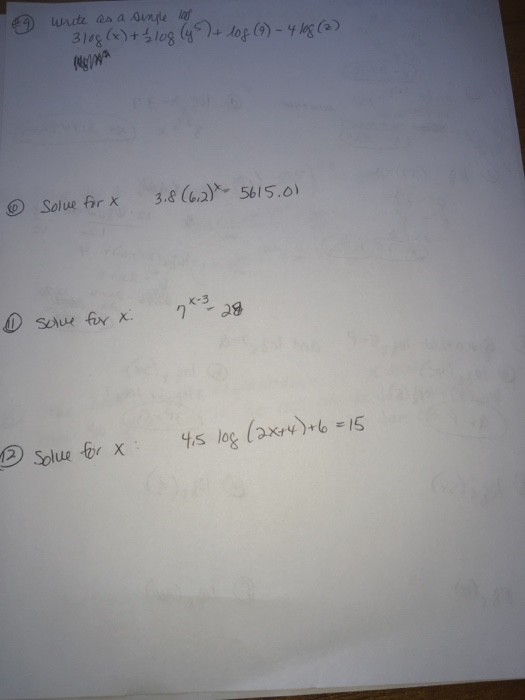 #9 Write as a single log
3 log (x) + ½ log (y⁵) + log (9) - 4 log (2)
10 Solve for x 3.8 (6.2)ˣ = 5615.01
11 Solve for x: 7ˣ⁻³ = 28
12 Solve for x: 4.5 log (2x+4)+6 = 15